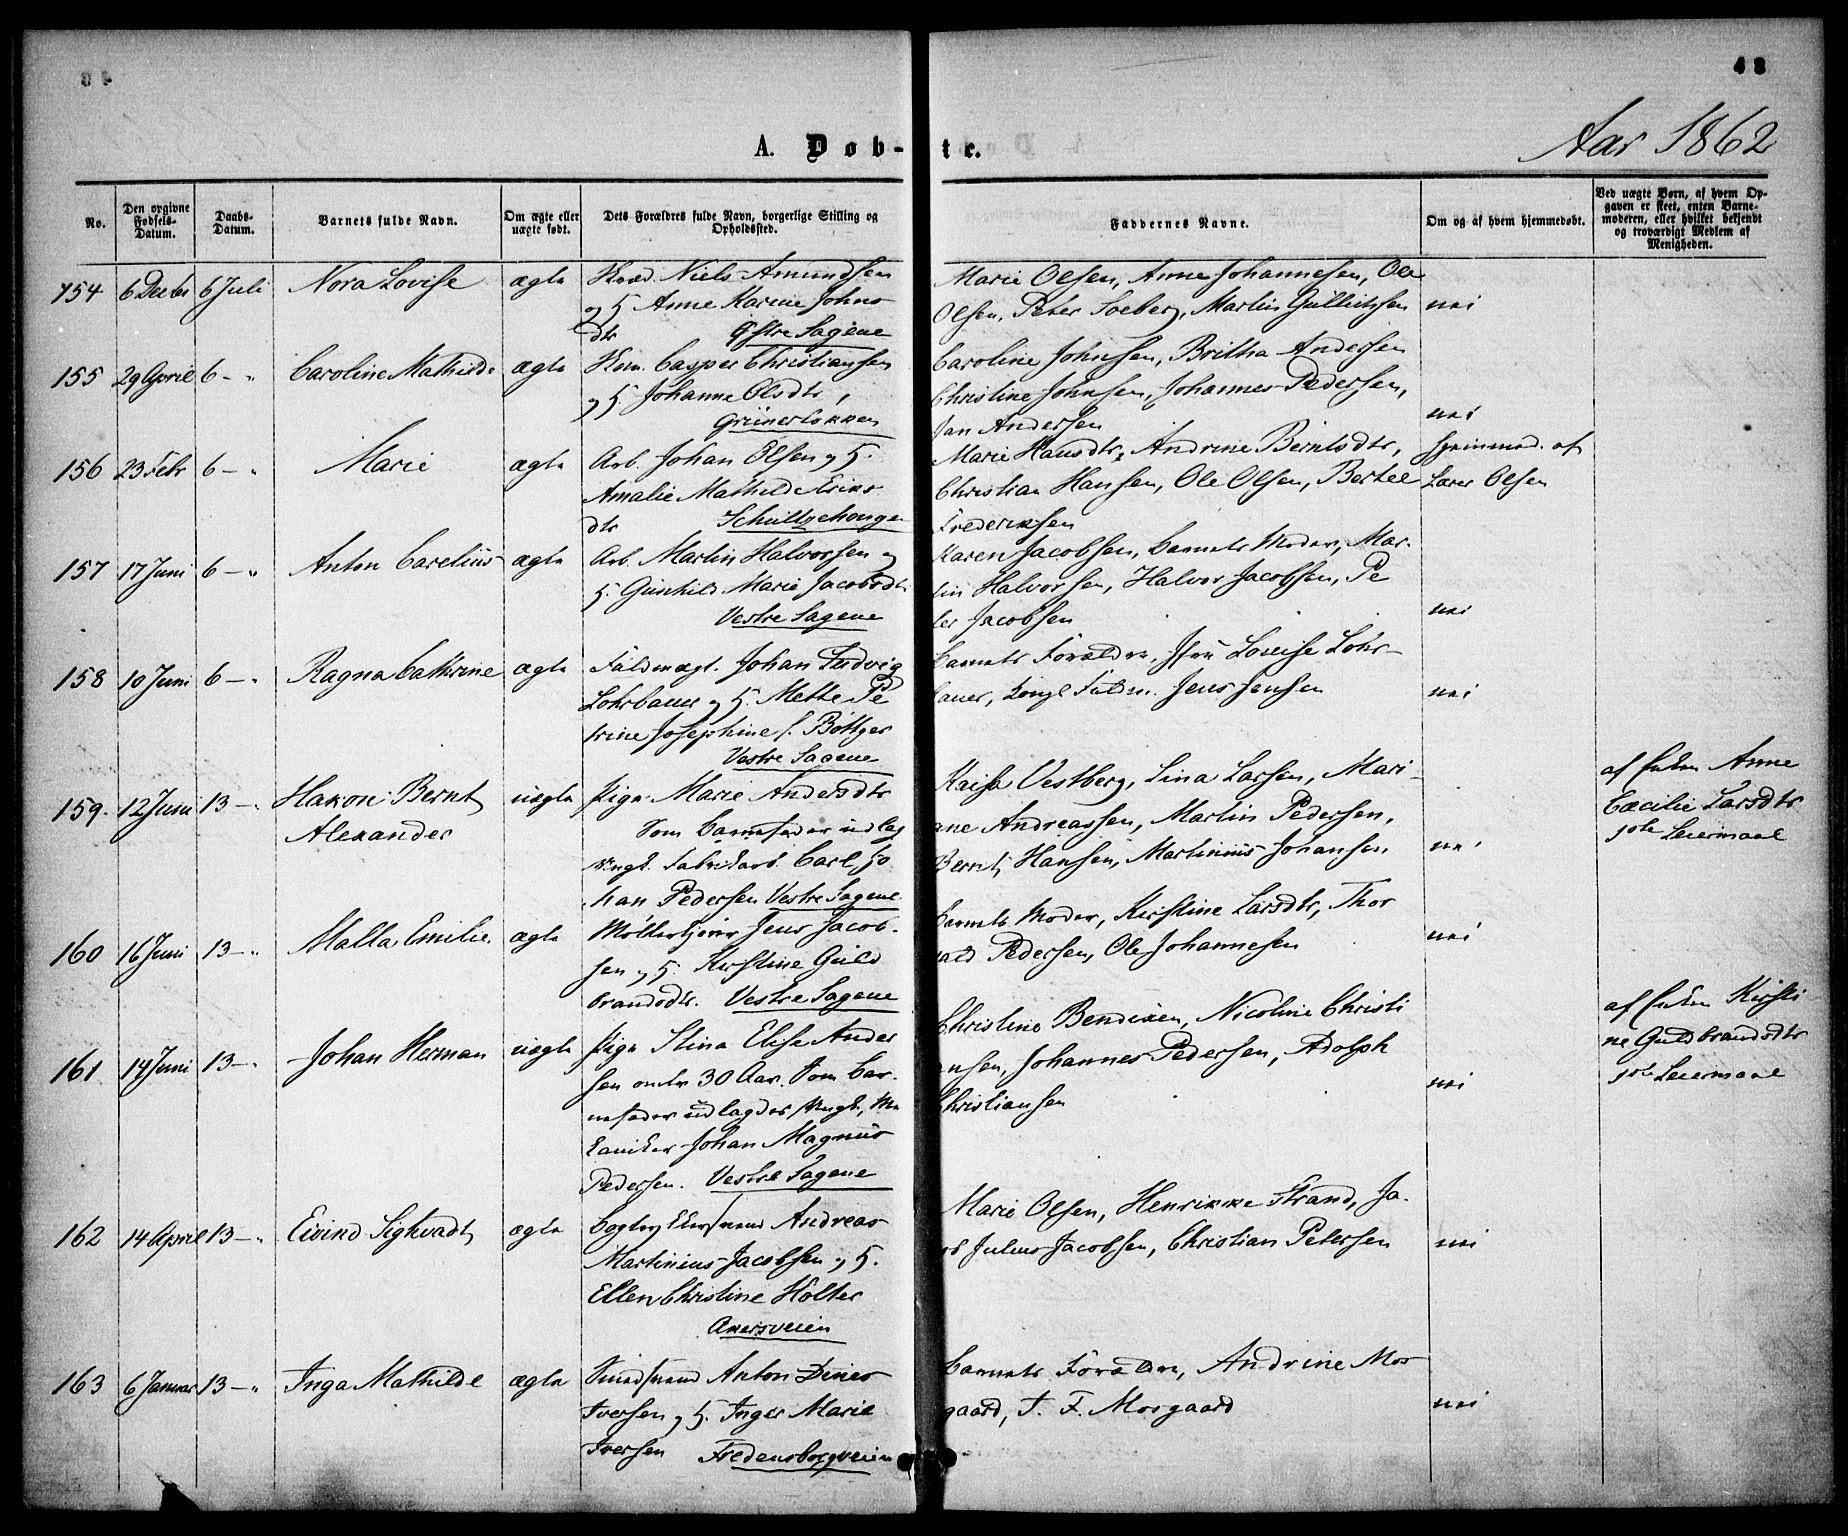 48
Aar 1862
A. Døbte.
No.
Den opgivne Fødsels-Datum.
Daabs-Datum.
Barnets fulde Navn.
Om ægte eller uægte født.
Dets Forældres fulde Navn, borgerlige Stilling og Opholdssted.
Faddernes Navne.
Om og af hvem hjemmedøbt.
Ved uægte Børn, af hvem Opgaven er skeet, enten Barnemoderen, eller hvilket bekjendt og troværdigt Medlem af Menigheden.
154 6 Decbr 6 Juli Nora Lovise ægte
Niels Amundsen
og H. Anne Karine Johns
dtr Østre Sagene
Marie Olsen, Anne Johannesen, Ole
Olsen, Peter Soeberg, Martin Gullichsen nei
155 29 April 6 - " Caroline Mathilde ægte
Casper Christiansen
og H. Johanne Olsdtr,
Grünerløkken
Caroline Johnsen, Britha Andersen
Christine Johnsen, Johannes Pedersen,
Jan Andersen nei
156 23 Febr 6 - " Marie ægte
Arb. Johan Olsen og H.
Amalie Mathilde Eriks
dtr Schultzehougen
Marie Hansdtr, Andrine Berntsdtr,
Christian Hansen, Ole Olsen, Bertel
Frederiksen
hjemmed. af
Lærer Olsen
157 17 Juni 6 - " Anton Carelius ægte
Arb. Martin Halvorsen og
H. Gunhild Marie Jacobsdtr
Vestre Sagene
Karen Jacobsen, Barnets Moder, Mar-
tin Halvorsen, Halvor Jacobsen, Pe
ter Jacobsen nei
158 10 Juni 6 - " Ragna Cathrine ægte
Fuldmægt. Johan Ludvig
Lohrbauer og H. Mette Pe
trine Josephine f. Bøttger
Vestre Sagene
Barnets Forældre, Jfru Lovise Lohr-
bauer, Fuldm. Jens Jensen nei
159. 12 Juni 13 - " Hakon Bernt
Alexander
uægte
Pige Marie Andersdtr
Som Barnefader udlagt
Ungk. Fabrikarb. Carl Jo
han Pedersen Vestre Sagene
Kaisa Vestberg, Lina Larsen, Mari-
ane Andreassen, Martin Pedersen,
Bernt Hansen, Martinius Johansen nei
af Enken Anne
Cæcilie Larsdtr
1ste Leiermaal
160 16 Juni 13 - " Malla Emilie ægte
Møllerkjører Jens Jacob-
sen og H. Kirstine Guld
brandsdtr. Vestre Sagene
Barnets Moder, Kirstine Larsdtr, Thor
vald Pedersen, Ole Johannesen nei
161 14 Juni 13 - " Johan Herman uægte
Pige Stina Elise Ander
sen under 30 Aar. Som Bar-
nefader udlagdes Ungk., Me
kaniker Johan Magnus
Pedersen. Vestre Sagene
Christine Bendixen, Nicoline Christi
ansen, Johannes Pedersen, Adolph
Christiansen nei
af Enken Kirsti
ne Guldbrandsdtr
1ste Leiermaal
162 14 April 13 - " Eivind Sighvadt ægte
Andreas
Martinius Jacobsen og H.
Ellen Christine Holter
Akersveien
Marie Olsen, Henrikke Strand, Ja-
cob Julius Jacobsen, Christian Petersen nei
163 6 Januar 13 - " Inga Mathilde ægte
Anton Dines
Iversen og H. Inger Marie
Iversen Fredensborgveien
Barnets Forældre, Andrine Mos
gaard, T. F. Mosgaard nei